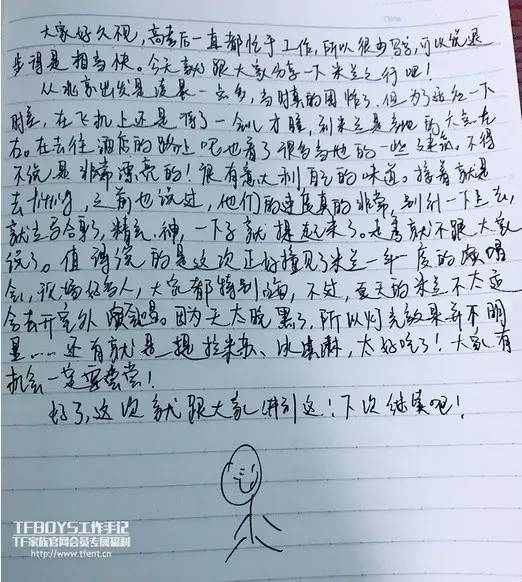 大家好久不见，高考后一直都忙于工作，所以很少写字，可以说退
步得是相当快。今天就跟大家分享一下米兰之行吧！
从北京出发是凌晨一点多，当时真的困炸了，但为了适应一下
时差，在飞机上还是了一会儿才睡，到米兰是当地的大早左
右。在去往酒店的路上呢也看了很多当地的一些建筑。不得
不说是非常漂亮的！很有意大利自己的味道。接着就是
去fitting，之前也说过，他们的速度真的非常，别针一下上去，
就立马合身了，精神，一下子就提起来了。这事就不跟大家
说了。值得说的是这次正好撞见了米兰一年一度的演唱
会，现场好多人，大家都特别嗨，不过，夏天的米兰不太适
合去开室外演唱会。因为天太晚黑了，所以灯光效果并不明
显……还有就是提拉米苏、冰淇淋，太好吃了！大家有
机会一定要尝尝！
好了，这次就跟大家讲到这！下次继续吧！
TFBOYS工作手记
TF家族官网会员专属福利
http://www.tfent.cn